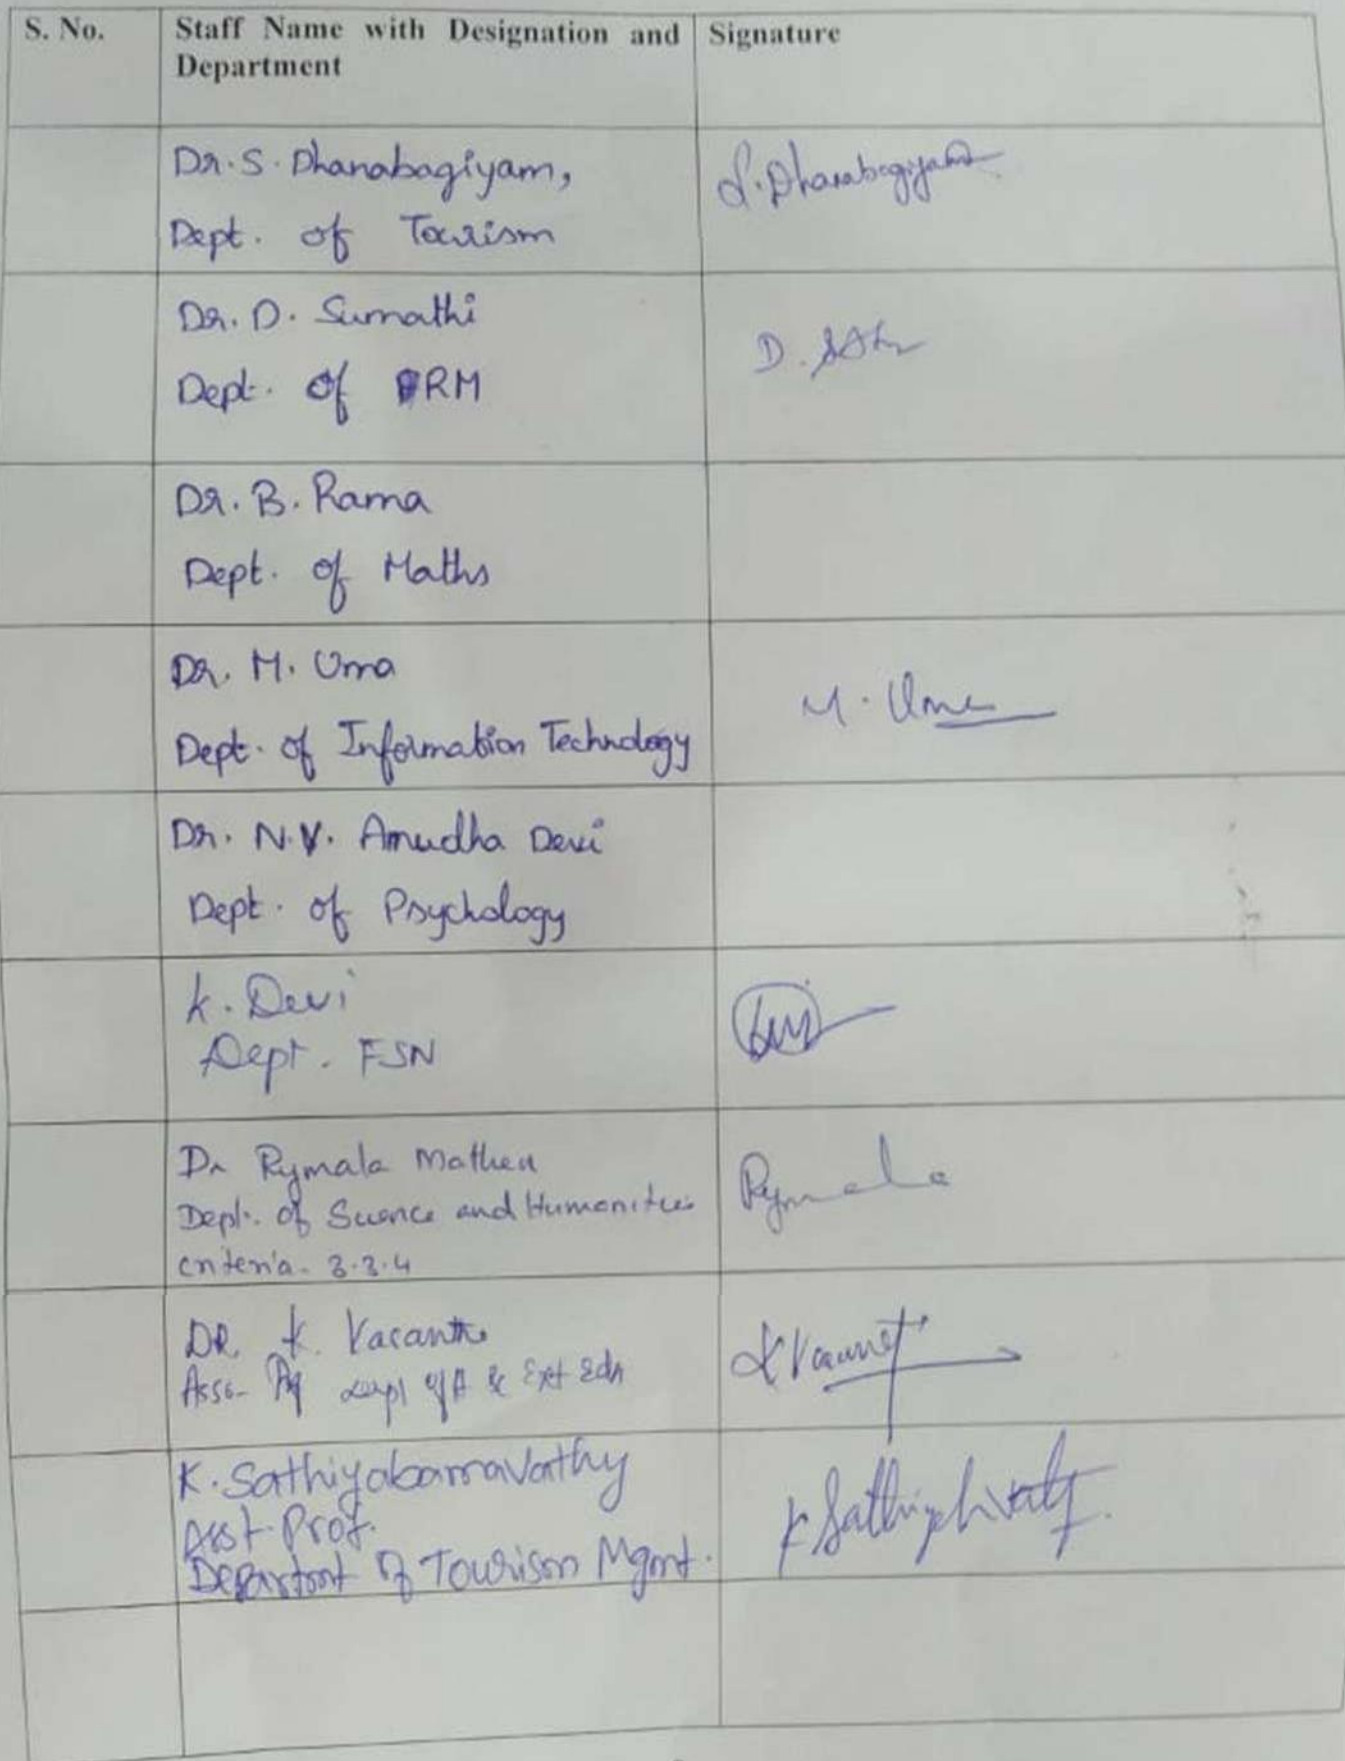 S. No.
Staff Name with Designation and
Department
Signature
Dr. S. Dhanabagiyam,
Dept. of Tourism
S. Dhanabagiyam
Dr. D. Sumathi
Dept. of RM
D.
Dr. B. Rama
Dept. of Maths
Dr. M. Uma
Dept. of Information Technology
M. Uma
Dr. N.V. Amudha Devi
Dept. of Psychology
K. Devi
Dept. FSN
Dr Rymala Mathen
Dept. of Science and Humanities
criteria - 3.3.4
Rymala
DR. K. Vasanth
Asso- Dept & Ext Edn
K. Sathiyabamavathy
Asst. Prof.
Department of Tourism Mgmt.